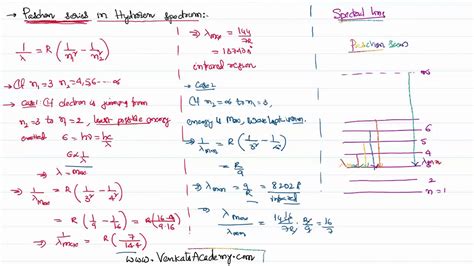 → Paschen series in Hydrogen spectrum:-
1/λ = R (1/n₁² - 1/n₂²)
→ If n₁=3 n₂=4,5,6 --- ∞
→ Case1: If electron is jumping from
n₂=3 to n₁=2, least possible energy
emitted E = hν = hc/λ
E ∝ 1/λ
⇒ λ - max
⇒ 1/λmax = R (1/3² - 1/4²)
= R (1/9 - 1/16) = R (16-9/9·16)
⇒ 1/λmax = R (7/144)
⇒ λmax = 144/7R
= 18743Å
infrared region
→ Case2
If n₂=∞ to n₁=3,
energy is Max,
⇒ 1/λmin = R (1/3² - 1/∞²)
= R/9
⇒ λmin = 9/R = 8202Å
infrared
⇒ λmax/λmin = 144/7R · R/9 = 16/7
www.VenkatsAcademy.com
Spectral lines
Paschen series
∞
6
5
4
3
λmax
2
n=1